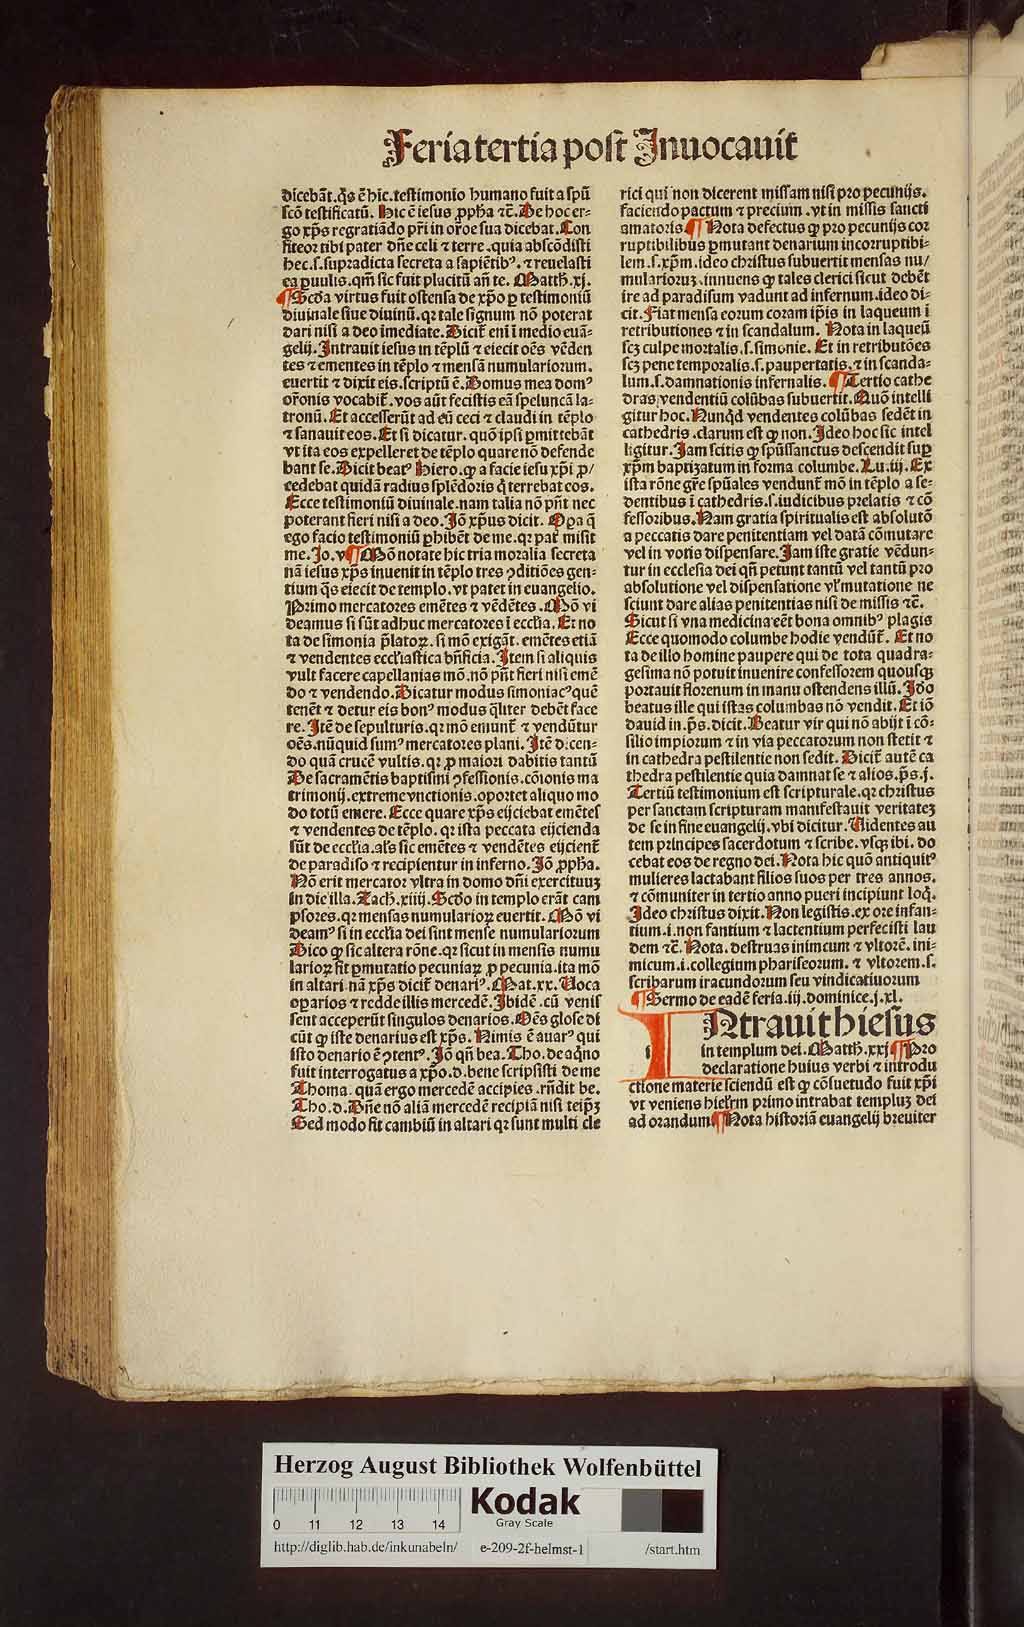 Feria tertia post Inuocauit
dicebāt. q̄s ē hic. testimonio humano fuit a spū
scō testificatū. Hic ē iesus ꝓpħa ⁊c̄. De hoc er-
go xp̄s regratiādo pr̄i in or̄oe sua dicebat. Con
fiteor tibi pater dn̄e celi ⁊ terre. quia abscōdisti
hec. s. supradicta secreta a sapiētibꝰ. ⁊ reuelasti
ea ꝑuulis. qm̄ sic fuit placitū an̄ te. Matth. xj.
¶ Scd̄a virtus fuit ostensa de xp̄o ꝑ testimoniū
diuinale siue diuinū. qꝛ tale signum nō poterat
dari nisi a deo īmediate. Dicit̄ eni ī medio euā-
gelij. Intrauit iesus in tēplū ⁊ eiecit oēs vēden
tes ⁊ ementes in tēplo ⁊ mensā numulariorum.
euertit ⁊ dixit eis. scriptū ē. Domus mea domꝰ
or̄onis vocabit̄. vos aūt fecistis eā speluncā la-
tronū. Et accesserūt ad eū ceci ⁊ claudi in tēplo
⁊ sanauit eos. Et si dicatur. quō ipsi ꝑmittebāt
vt ita eos expelleret de tēplo quare nō defende
bant se. Dicit beatꝰ Hiero. ꝙ a facie iesu xp̄i ꝓ/
cedebat quidā radius splēdoris q̄ terrebat eos.
Ecce testimoniū diuinale. nam talia nō pn̄t nec
poterant fieri nisi a deo. Iō xp̄us dicit. Oꝑa q̄
ego facio testimoniū ꝑhibēt de me. qꝛ pat̄ misit
me. Jo. v ¶ Mō notate hic tria moralia secreta
nā iesus xp̄s inuenit in tēplo tres ꝯditiōes gen-
tium q̄s eiecit de templo. vt patet in euangelio.
Primo mercatores emētes ⁊ vēdētes. Mō vi
deamus si sūt adhuc mercatores ī eccl̄ia. Et no
ta de simonia p̄latoꝝ. si mō exigāt. emētes etiā
⁊ vendentes eccl̄iastica bn̄ficia. Item si aliquis
vult facere capellanias mō. nō pn̄t fieri nisi emē
do ⁊ vendendo. Dicatur modus simoniacꝰ quē
tenēt ⁊ detur eis bonꝰ modus q̄liter debēt face
re. Itē de sepulturis. qꝛ mō emunt̄ ⁊ vendūtur
oēs. nūquid sumꝰ mercatores plani. Itē dicen-
do quā crucē vultis. qꝛ ꝓ maiori dabitis tantū
De sacramētis baptismi ꝯfessionis. cōionis ma
trimonij. extreme vnctionis. oportet aliquo mo
do totū emere. Ecce quare xp̄s eijciebat emētes
⁊ vendentes de tēplo. qꝛ ista peccata eijcienda
sūt de eccl̄ia. al̄s sic emētes ⁊ vendētes eijcient̄
de paradiso ⁊ recipientur in inferno. Iō ꝓpħa.
Nō erit mercator vltra in domo dn̄i exercituuꝫ
in die illa. Zach. xiiij. Scd̄o in templo erāt cam
psores. qꝛ mensas numularioꝝ euertit. Mō vi
deamꝰ si in eccl̄ia dei sint mense numulariorum
Dico ꝙ sic altera rōne. qꝛ sicut in mensis numu
larioꝝ fit ꝑmutatio pecuniaꝝ ꝓ pecunia. ita mō
in altari. nā xp̄s dicit̄ denariꝰ. Mat. xx. Uoca
oꝑarios ⁊ redde illis mercedē. Ibidē. cū venis
sent acceperūt singulos denarios. Oēs glose di
cūt ꝙ iste denarius est xp̄s. Nimis ē auarꝰ qui
isto denario ē ꝯtentꝰ. Iō qn̄ bea. Tho. de aq̄no
fuit interrogatus a xp̄o. d. bene scripsisti de me
Thoma. quā ergo mercedē accipies. rn̄dit be.
Tho. d. Dn̄e nō aliā mercedē recipiā nisi teip̄ꝫ
Sed modo fit cambiū in altari qꝛ sunt multi cle
rici qui non dicerent missam nisi pro pecunijs.
faciendo pactum ⁊ precium. vt in missis sancti
amatoris ¶ Nota defectus ꝙ pro pecunijs cor
ruptibilibus ꝑmutant denarium incorruptibi-
lem. s. xp̄m. ideo christus subuertit mensas nu/
mularioruꝫ. innuens ꝙ tales clerici sicut debēt
ire ad paradisum vadunt ad infernum. ideo di-
cit. Fiat mensa eorum coram ip̄is in laqueum ī
retributiones ⁊ in scandalum. Nota in laqueū
scꝫ culpe mortalis. s. simonie. Et in retributōes
scꝫ pene temporalis. s. paupertatis. ⁊ in scanda-
lum. s. damnationis infernalis. ¶ Tertio cathe
dras vendentiū colūbas subuertit. Quō intelli
gitur hoc. Nunqd̄ vendentes colūbas sedēt in
cathedris. clarum est ꝙ non. Ideo hoc sic intel
ligitur. Iam scitis ꝙ spūssanctus descendit suꝑ
xp̄m baptizatum in forma columbe. Lu. iij. Ex
ista rōne gr̄e spūales vendunt̄ mō in tēplo a se-
dentibus ī cathedris. s. iudicibus prelatis ⁊ cō
fessoribus. Nam gratia spiritualis est absolutō
a peccatis dare penitentiam vel datā cōmutare
vel in votis dispensare. Iam iste gratie vēdun-
tur in ecclesia dei qn̄ petunt tantū vel tantū pro
absolutione vel dispensatione vl̄ mutatione ne
sciunt dare alias penitentias nisi de missis ⁊c̄.
Sicut si vna medicina eēt bona omnibꝰ plagis
Ecce quomodo columbe hodie vendūt̄. Et no
ta de illo homine paupere qui de tota quadra-
gesima nō potuit inuenire confessorem quousqꝫ
portauit florenum in manu ostendens illū. Idō
beatus ille qui istas columbas nō vendit. Et iō
dauid in. ps̄. dicit. Beatur vir qui nō abijt ī cō-
silio impiorum ⁊ in via peccatorum non stetit ⁊
in cathedra pestilentie non sedit. Dicit̄ autē ca
thedra pestilentie quia damnat se ⁊ alios. ps̄. j.
Tertiū testimonium est scripturale. qꝛ christus
per sanctam scripturam manifestauit veritateꝫ
de se in fine euangelij. vbi dicitur. Uidentes au
tem principes sacerdotum ⁊ scribe. vsqꝫ ibi. do
cebat eos de regno dei. Nota hic quō antiquitꝰ
mulieres lactabant filios suos per tres annos.
⁊ cōmuniter in tertio anno pueri incipiunt loq̄.
Ideo christus dixit. Non legistis. ex ore infan-
tium. i. non fantium ⁊ lactentium perfecisti lau
dem ⁊c̄. Nota. destruas inimicum ⁊ vltorē. ini-
micum. i. collegium phariseorum. ⁊ vltorem. s.
scribarum iracundorum seu vindicatiuorum
¶ Sermo de eadē feria. iij. dominice. j. xl.
INtrauit hiesus
in templum dei. Matth. xxj ¶ Pro
declaratione huius verbi ⁊ introdu
ctione materie sciendū est ꝙ cōsuetudo fuit xp̄i
vt veniens hier̄lm primo intrabat templuꝫ dei
ad orandum ¶ Nota historiā euangelij breuiter
Herzog August Bibliothek Wolfenbüttel
0 11 12 13 14
Kodak
Gray Scale
http://diglib.hab.de/inkunabeln/ e-209-2f-helmst-1 /start.htm